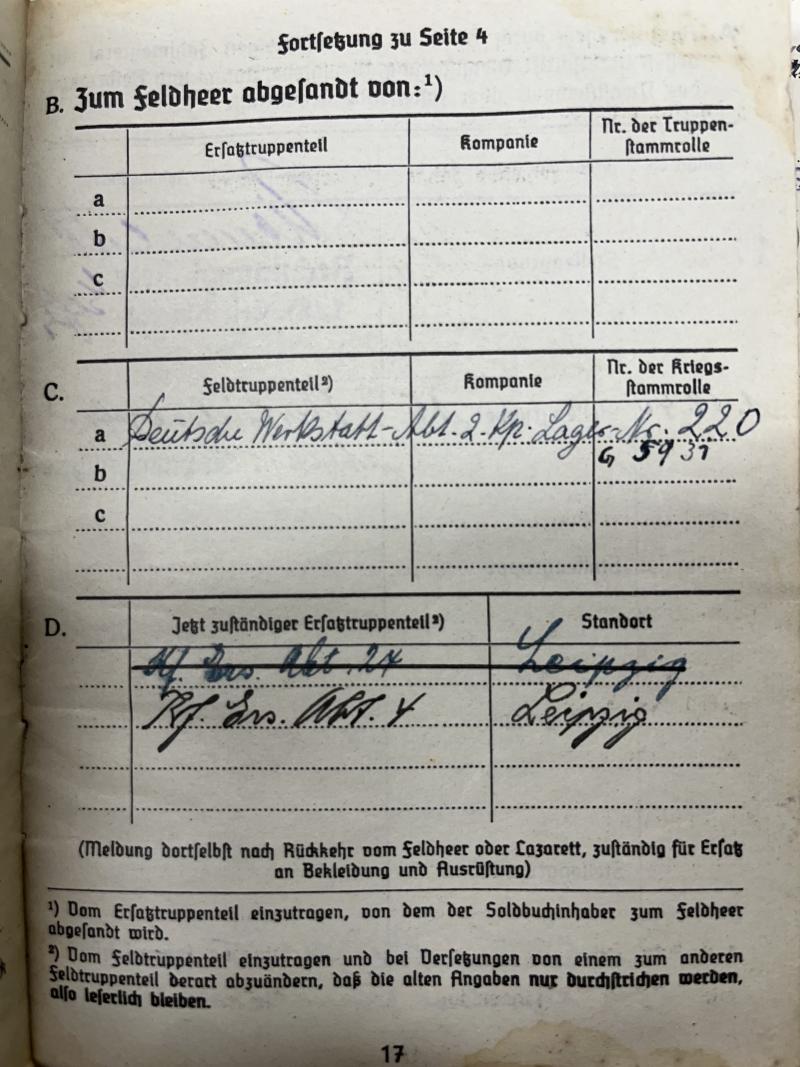 Fortsetzung zu Seite 4
B. Zum Feldheer abgesandt von:¹)
Ersatztruppenteil Kompanie Nr. der Truppen-
stammrolle
a
b
c
C. Feldtruppenteil²) Kompanie Nr. der Kriegs-
stammrolle
a Deutsche Werkstatt-Abt. 2. Kp. Lager-Nr. 220
b
c
D. Jetzt zuständiger Ersatztruppenteil²) Standort
Kf. Ers. Abt. 24 Leipzig
Kf. Ers. Abt. 4 Leipzig
(Meldung dortselbst nach Rückkehr vom Feldheer oder Lazarett, zuständig für Ersatz
an Bekleidung und Ausrüstung)
¹) Vom Ersatztruppenteil einzutragen, von dem der Soldbuchinhaber zum Feldheer
abgesandt wird.
²) Vom Feldtruppenteil einzutragen und bei Versetzungen von einem zum anderen
Feldtruppenteil derart abzuändern, daß die alten Angaben nur durchstrichen werden,
also leserlich bleiben.
17